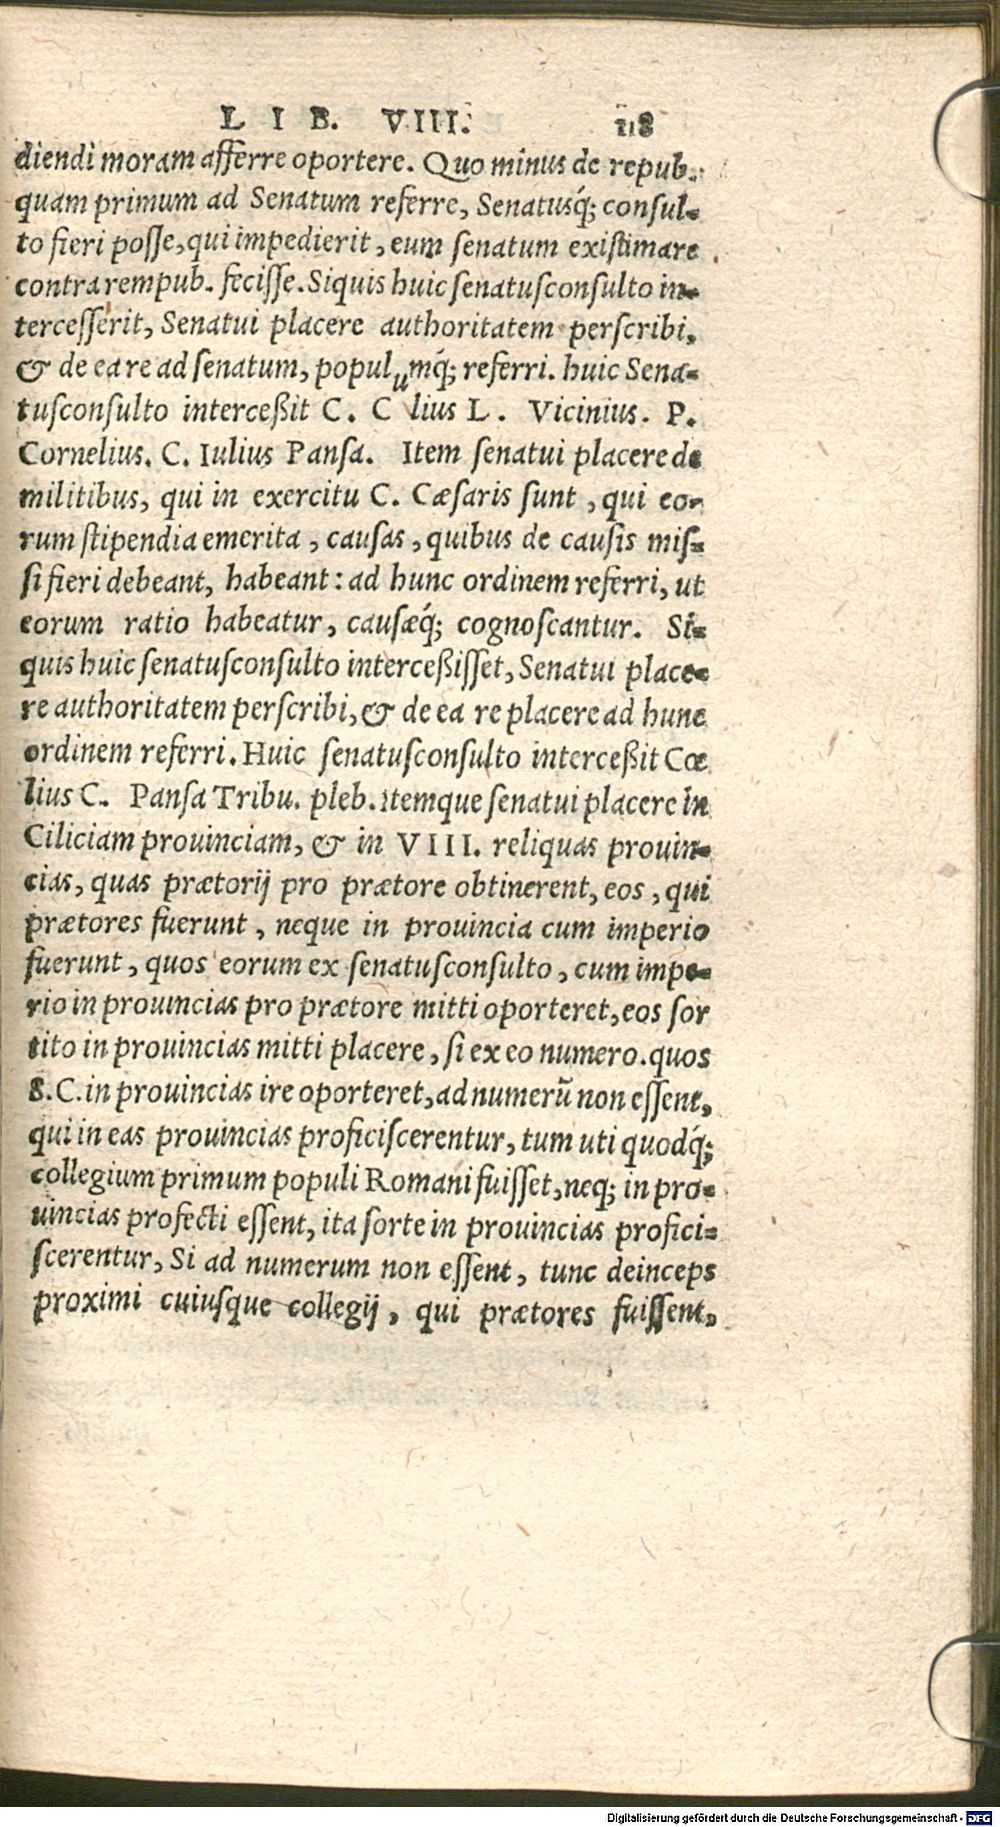 LIB. VIII. 118
diendi moram afferre oportere. Quo minus de repub.
quam primum ad Senatum referre, Senatusq́; consul-
to fieri posse, qui impedierit, eum senatum existimare
contra rempub. fecisse. Siquis huic senatusconsulto in-
tercesserit, Senatui placere authoritatem perscribi,
& de ea re ad senatum, populumq́; referri. huic Sena-
tusconsulto interceßit C. C lius L. Vicinius. P.
Cornelius. C. Iulius Pansa. Item senatui placere de
militibus, qui in exercitu C. Cæsaris sunt, qui eo-
rum stipendia emerita, causas, quibus de causis mis-
si fieri debeant, habeant: ad hunc ordinem referri, ut
eorum ratio habeatur, causæq́; cognoscantur. Si-
quis huic senatusconsulto interceßisset, Senatui place-
re authoritatem perscribi, & de ea re placere ad hunc
ordinem referri. Huic senatusconsulto interceßit Cœ
lius C. Pansa Tribu. pleb. itemque senatui placere in
Ciliciam prouinciam, & in VIII. reliquas prouin-
cias, quas prætorij pro prætore obtinerent, eos, qui
prætores fuerunt, neque in prouincia cum imperio
fuerunt, quos eorum ex senatusconsulto, cum impe-
rio in prouincias pro prætore mitti oporteret, eos sor
tito in prouincias mitti placere, si ex eo numero. quos
S. C. in prouincias ire oporteret, ad numerũ non essent,
qui in eas prouincias proficiscerentur, tum uti quodq́;
collegium primum populi Romani fuisset, neq; in pro-
uincias profecti essent, ita sorte in prouincias profici-
scerentur, Si ad numerum non essent, tunc deinceps
proximi cuiusque collegij, qui prætores fuissent,
Digitalisierung gefördert durch die Deutsche Forschungsgemeinschaft - DFG